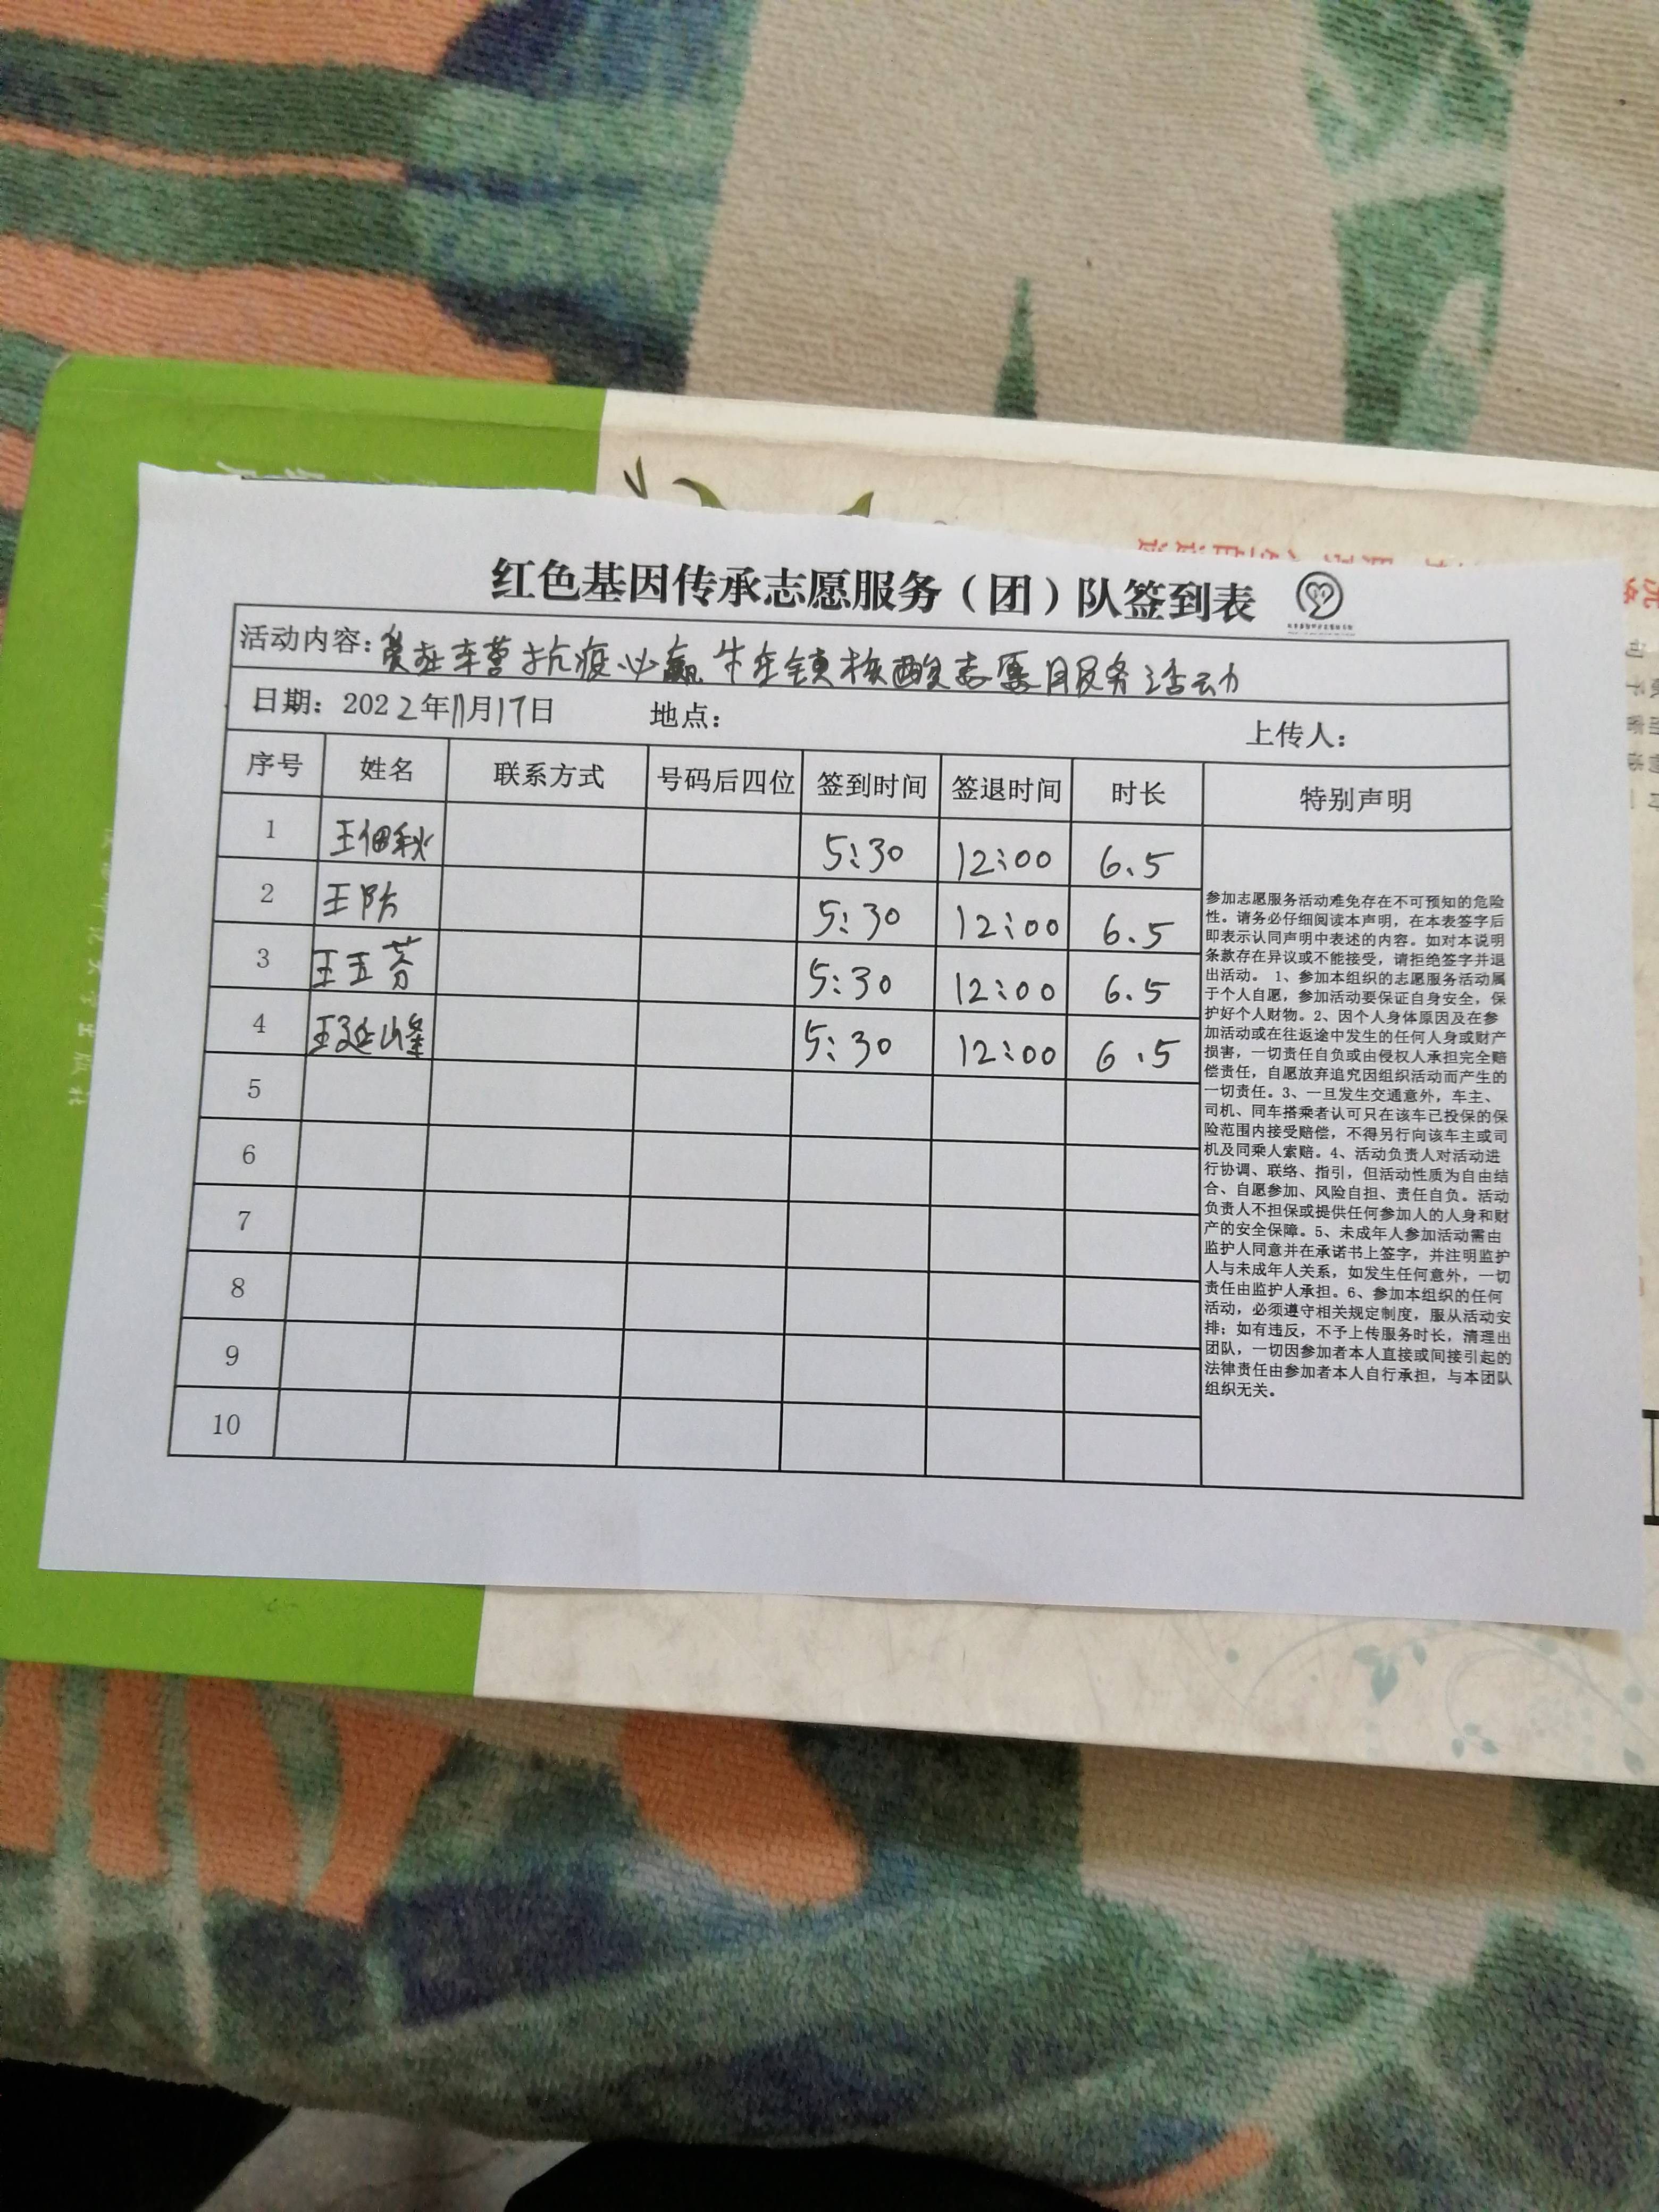 红色基因传承志愿服务（团）队签到表
活动内容：爱在车营 抗疫必赢 牛庄镇核酸志愿服务活动
日期：2022年11月17日 地点： 上传人：
序号 姓名 联系方式 号码后四位 签到时间 签退时间 时长 特别声明
1 王佃秋 5:30 12:00 6.5
2 王防 5:30 12:00 6.5
3 王玉芬 5:30 12:00 6.5
4 王延峰 5:30 12:00 6.5
5
6
7
8
9
10
参加志愿服务活动难免存在不可预知的危险
性。请务必仔细阅读本声明，在本表签字后
即表示认同声明中表述的内容。如对本说明
条款存在异议或不能接受，请拒绝签字并退
出活动。 1、参加本组织的志愿服务活动属
于个人自愿，参加活动要保证自身安全，保
护好个人财物。2、因个人身体原因及在参
加活动或在往返途中发生的任何人身或财产
损害，一切责任自负或由侵权人承担完全赔
偿责任，自愿放弃追究因组织活动而产生的
一切责任。3、一旦发生交通意外，车主、
司机、同车搭乘者认可只在该车已投保的保
险范围内接受赔偿，不得另行向该车主或司
机及同乘人索赔。4、活动负责人对活动进
行协调、联络、指引，但活动性质为自由结
合、自愿参加、风险自担、责任自负。活动
负责人不担保或提供任何参加人的人身和财
产的安全保障。5、未成年人参加活动需由
监护人同意并在承诺书上签字，并注明监护
人与未成年人关系，如发生任何意外，一切
责任由监护人承担。6、参加本组织的任何
活动，必须遵守相关规定制度，服从活动安
排；如有违反，不予上传服务时长，清理出
团队，一切因参加者本人直接或间接引起的
法律责任由参加者本人自行承担，与本团队
组织无关。